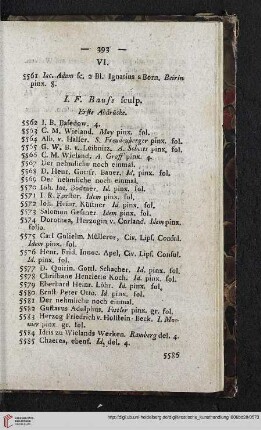 — 393 —
VI.
5561 Jac. Adam sc. 2 Bl. Ignatius a Born.
pinx. 8.
I. F. Bause sculp.
Erste Abdrücke.
5562 J. B. Basedow. 4.
5563 C. M. Wieland. May pinx. fol.
5564 Alb. v. Haller. S. Freudenberger pinx. fol.
5565 G. W. B. v. Leibnitz. A. Scheits pinx. fol.
5566 C. M. Wieland. A. Graff pinx. 4.
5567 Der nehmliche noch einmal.
5568 D. Henr. Gottfr. Bauer. Id. pinx. fol.
5569 Der nehmliche noch einmal.
5570 Joh. Jac. Bodmer. Id. pinx. fol.
5571 J. R. Forster. Idem pinx. fol.
5572 Joh. Heinr. Küttner Id. pinx. fol.
5573 Salomon Gessner. Idem pinx. fol.
5574 Dorothea, Herzogin v. Curland. Idem pinx.
folio.
5575 Carl Gottlieb. Müllerov, Civ. Lips. Consul.
Idem pinx. fol.
5576 Henr. Frid. Innoc. Apel, Civ. Lips. Consul
Id. pinx. fol.
5577 D. Quirin. Gottl. Schacher. Id. pinx. fol.
5578 Christiane Henriette Koch. Id. pinx. fol.
5579 Eberhard Heinr. Löhr. Id. pinx. fol.
5580 Ernst Peter Otto. Id. pinx. fol.
5581 Der nehmliche noch einmal.
5582 Gustavus Adolphus. pinx. gr. fol.
5583 Herzog Friedrich v. Hollstein-Beck.
pinx. fol.
5584 Idris zu Wielands Werken. Ramberg del. 4.
5585 Chaerea, ebend. Id. del. 4.
5586